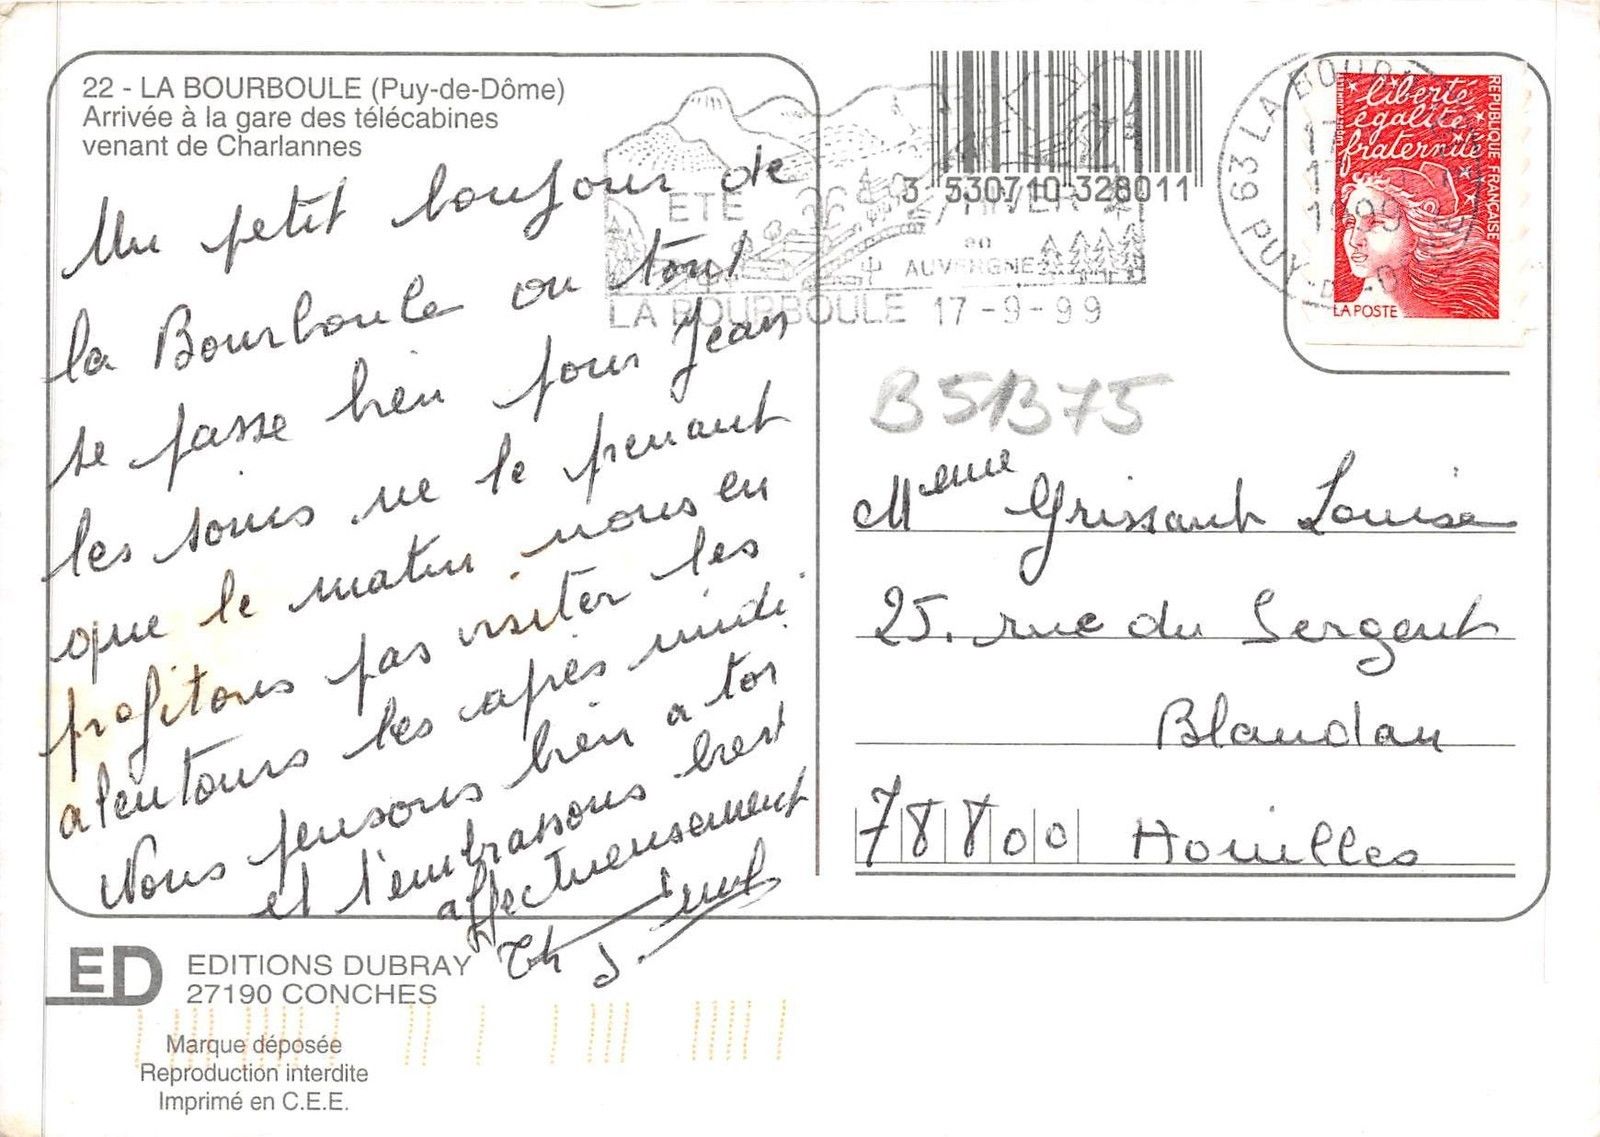 22 - LA BOURBOULE (Puy-de-Dôme)
Arrivée à la gare des télécabines
venant de Charlannes
Un petit bonjour de
la Bourboule ou tout
se passe bien pour Jean
les soins ne le prenant
que le matin nous en
profitons pas visiter les
alentours les après midi
Nous pensons bien a toi
et t'embrassons bien
affectueusement
Th J.
ED
EDITIONS DUBRAY
27190 CONCHES
Marque déposée
Reproduction interdite
Imprimé en C.E.E.
3 530710 328011
ETE
HIVER
en
AUVERGNE
LA BOURBOULE 17-9-99
63 LA BOURBOULE
17
1999
PUY-DE-DOME
liberté
égalité
fraternité
REPUBLIQUE FRANÇAISE
LA POSTE
B51B75
Meme Grissant Louise
25. rue du Sergent
Blandan
78800 Houilles